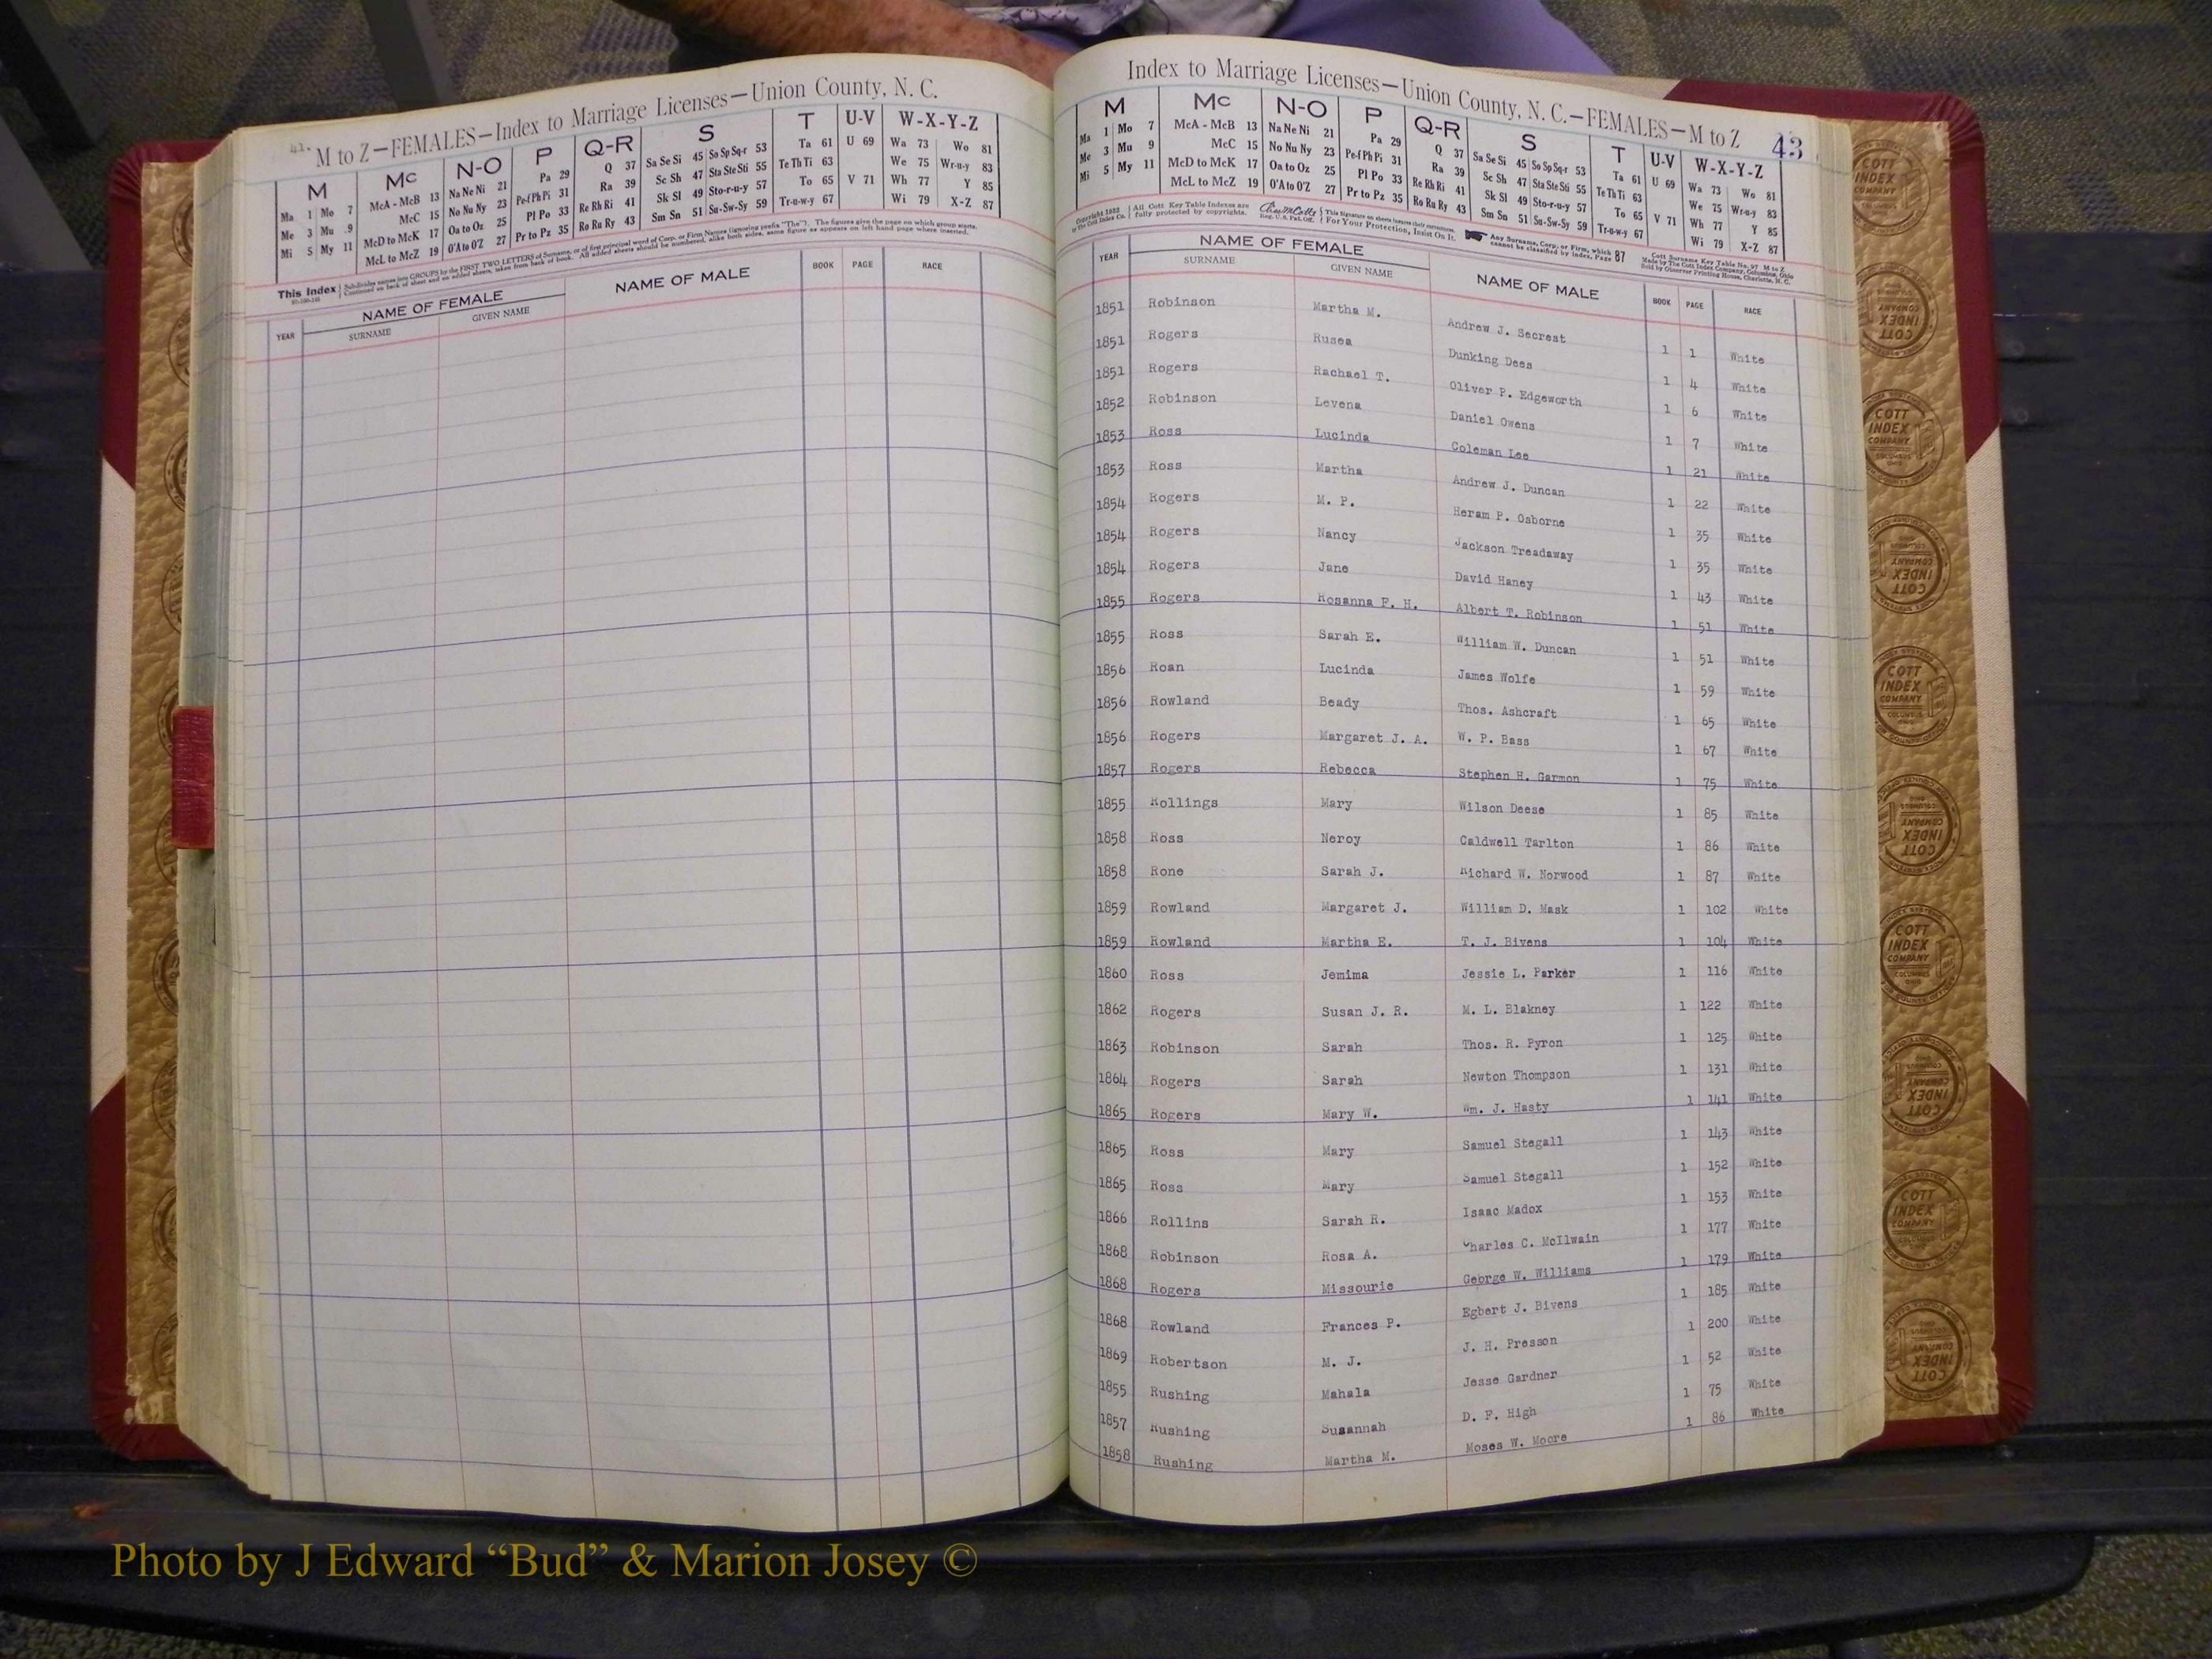 41.
M to Z—FEMALES—Index to Marriage Licenses—Union County, N. C.
M Mc N-O P Q-R S T U-V W-X-Y-Z
Ma 1 Mo 7 McA - McB 13 Na Ne Ni 21 Pa 29 Q 37 Sa Se Si 45 So Sp Sq-r 53 Ta 61 U 69 Wa 73 Wo 81
Me 3 Mu 9 McC 15 No Nu Ny 23 Pe-f Ph Pi 31 Ra 39 Sc Sh 47 Sta Ste Sti 55 Te Th Ti 63 We 75 Wr-u-y 83
Mi 5 My 11 McD to McK 17 Oa to Oz 25 Pl Po 33 Re Rh Ri 41 Sk Sl 49 Sto-r-u-y 57 To 65 V 71 Wh 77 Y 85
McL to McZ 19 O'A to O'Z 27 Pr to Pz 35 Ro Ru Ry 43 Sm Sn 51 Su-Sw-Sy 59 Tr-u-w-y 67 Wi 79 X-Z 87
This Index Subdivides names into GROUPS by the FIRST TWO LETTERS of Surname, or of first principal word of Corp. or Firm Names (ignoring prefix "The"). The figures give the page on which group starts.
Continued on back of sheet and on added sheets, taken from back of book. All added sheets should be numbered, alike both sides, same figure as appears on left hand page where inserted.
YEAR NAME OF FEMALE NAME OF MALE BOOK PAGE RACE
SURNAME GIVEN NAME
Index to Marriage Licenses—Union County, N. C.—FEMALES—M to Z 43
M Mc N-O P Q-R S T U-V W-X-Y-Z
Ma 1 Mo 7 McA - McB 13 Na Ne Ni 21 Pa 29 Q 37 Sa Se Si 45 So Sp Sq-r 53 Ta 61 U 69 Wa 73 Wo 81
Me 3 Mu 9 McC 15 No Nu Ny 23 Pe-f Ph Pi 31 Ra 39 Sc Sh 47 Sta Ste Sti 55 Te Th Ti 63 We 75 Wr-u-y 83
Mi 5 My 11 McD to McK 17 Oa to Oz 25 Pl Po 33 Re Rh Ri 41 Sk Sl 49 Sto-r-u-y 57 To 65 V 71 Wh 77 Y 85
McL to McZ 19 O'A to O'Z 27 Pr to Pz 35 Ro Ru Ry 43 Sm Sn 51 Su-Sw-Sy 59 Tr-u-w-y 67 Wi 79 X-Z 87
All Cott Key Table Indexes are fully protected by copyrights. For Your Protection, Insist On It. Any Surname, Corp. or Firm, which cannot be classified by Index, Page 87
Made by The Cott Index Company, Columbus, Ohio
Sold by Observer Printing House, Charlotte, N. C.
YEAR NAME OF FEMALE NAME OF MALE BOOK PAGE RACE
SURNAME GIVEN NAME
1851 Robinson Martha M. Andrew J. Secrest 1 1 White
1851 Rogers Rusea Dunking Dees 1 4 White
1851 Rogers Rachael T. Oliver P. Edgeworth 1 6 White
1852 Robinson Levena Daniel Owens 1 7 White
1853 Ross Lucinda Coleman Lee 1 21 White
1853 Ross Martha Andrew J. Duncan 1 22 White
1854 Rogers M. P. Heram P. Osborne 1 35 White
1854 Rogers Nancy Jackson Treadaway 1 35 White
1854 Rogers Jane David Haney 1 43 White
1855 Rogers Rosanna F. H. Albert T. Robinson 1 51 White
1855 Ross Sarah E. William W. Duncan 1 51 White
1856 Roan Lucinda James Wolfe 1 59 White
1856 Rowland Beady Thos. Ashcraft 1 65 White
1856 Rogers Margaret J. A. W. P. Bass 1 67 White
1857 Rogers Rebecca Stephen H. Garmon 1 75 White
1855 Rollings Mary Wilson Deese 1 85 White
1858 Ross Neroy Caldwell Tarlton 1 86 White
1858 Rone Sarah J. Richard W. Norwood 1 87 White
1859 Rowland Margaret J. William D. Mask 1 102 White
1859 Rowland Martha E. T. J. Bivens 1 104 White
1860 Ross Jemima Jessie L. Parker 1 116 White
1862 Rogers Susan J. R. M. L. Blakney 1 122 White
1863 Robinson Sarah Thos. R. Pyron 1 125 White
1864 Rogers Sarah Newton Thompson 1 131 White
1865 Rogers Mary W. Wm. J. Hasty 1 141 White
1865 Ross Mary Samuel Stegall 1 143 White
1865 Ross Mary Samuel Stegall 1 152 White
1866 Rollins Sarah R. Isaac Madox 1 153 White
1868 Robinson Rosa A. Charles C. McIlwain 1 177 White
1868 Rogers Missourie George W. Williams 1 179 White
1868 Rowland Frances P. Egbert J. Bivens 1 185 White
1869 Robertson M. J. J. H. Presson 1 200 White
1855 Rushing Mahala Jesse Gardner 1 52 White
1857 Rushing Susannah D. F. High 1 75 White
1858 Rushing Martha M. Moses W. Moore 1 86 White
COTT INDEX COMPANY COLUMBUS OHIO
Photo by J Edward “Bud” & Marion Josey ©